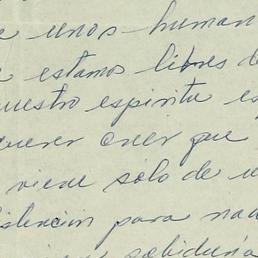 e unos human
e estamos libres d
nuestro espiritu es
querer creer que
viene sólo de u
para nad
sabiduría